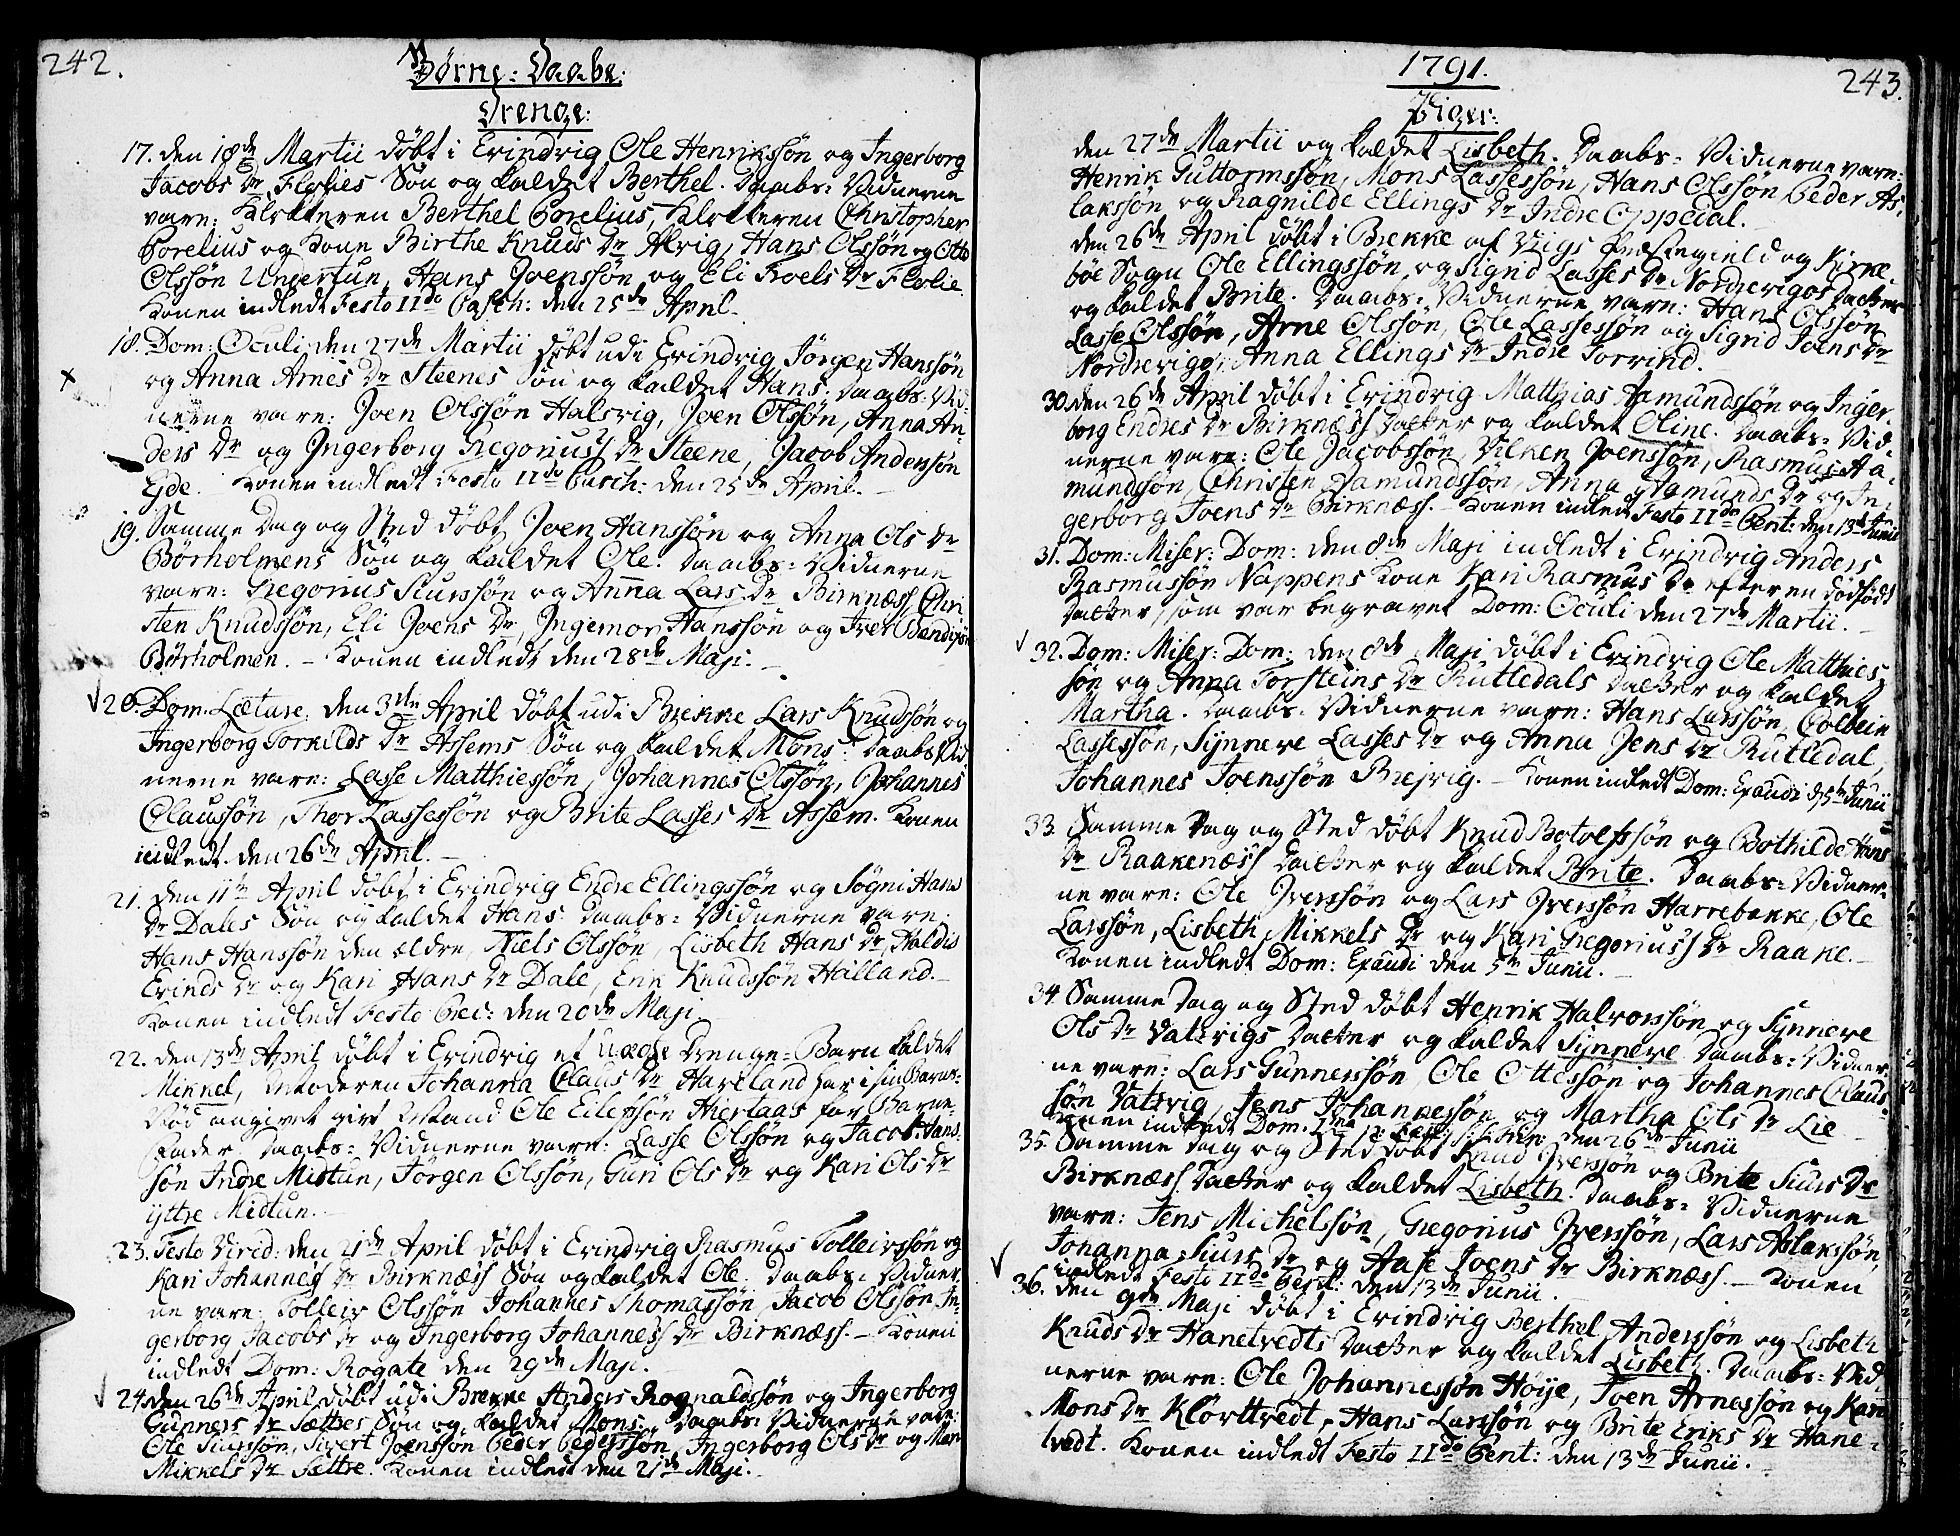 242.
Børne-Daabe.
Drenge:
17. den 18de Martii døbt i Erindvig Ole Henrikssøn og Ingerborg
Jacobs Dr Flolies Søn og kaldet Berthel. Daabs-Vidnerne
vare: Klokkeren Berthel Borelius, Klokkeren Christopher
Borelius og Kone Birthe Knuds Dr Alvig, Hans Olssøn og Otto
Olssøn Unjertun, Hans Joenssøn og Eli Troels Dr Flolie.
Konen indledt Festo IIdo Pasch: den 25de April.
18. Dom: Oculi, den 27de Martii døbt udi Erindvig Jørgen Hanssøn
og Anna Arnes Dr Steenes Søn og kaldet Hans. Daabs-Vid-
nerne vare: Joen Olssøn Halsvig, Joen Olssøn, Anna An-
ders Dr og Ingerborg Gregoriuss Dr Steene, Jacob Anderssøn
Ejde. Konen indledt Festo IIdo Pasch: den 25de April.
19. Samme Dag og Sted døbt Joen Hanssøn og Anna Ols Dr
Børholmens Søn og kaldet Ole. Daabs-Vidnerne
vare: Gregorius Siurssøn og Anna Lars Dr Birknæss, Chri
sten Knudssøn, Eli Joens Dr, Ingemor Hanssøn og Iver Bendixsøn
Børholmen. - Konen indledt den 28de Maji.
20. Dom. Lætare, den 3die April døbt udi Brekke Lars Knudssøn og
Ingerborg Torkilds Dr Assems Søn og kaldet Mons. Daabs Vid-
nerne vare: Lasse Matthiessøn, Johannes Olssøn, Johannes
Claussøn, Thor Lassessøn og Brite Lasses Dr Assem. Konen
indledt den 26de April.
21. den 11te April døbt i Erindvig Endre Ellingssøn og Søgni Hans
Dr Dales Søn og kaldet Hans. Daabs-Vidnerne vare:
Hans Hanssøn den ældre, Niels Olssøn, Lisbeth Hans Dr, Haldis
Erinds Dr og Kari Hans Dr Dale, Erik Knudssøn Halland.
Konen indledt Festo Prec: den 20de Maji.
22. den 13de April døbt i Erindvig et uægte Drenge-Barn kaldet
Mikkel, Moderen Johanna Claus Dr Haveland har i sin Barns-
Nød angivet givt Mand Ole Eilefssøn Hiertaas for Barne-
Fader. Daabs-Vidnerne vare: Lasse Olssøn og Jacob Hans
søn Indre Mistun, Jørgen Olssøn, Guri Ols Dr og Kari Ols Dr
yttre Midtun.
23. Festo Virid: den 21de April døbt i Erindvig Rasmus Tolleivssøn og
Kari Johanness Dr Birknæss Søn og kaldet Ole. Daabs-Vidner
ne vare: Tolleiv Olssøn Johannes Thomassøn, Jacob Olssøn In-
gerborg Jacobs Dr og Ingerborg Johanness Dr Birknæss. - Konen
indledt Dom: Rogate den 29de Maji.
24. den 26de April døbt udi Brekke Anders Rognaldssøn og Ingerborg
Gunners Dr Sættres Søn og kaldet Mons. Daabs Vidnerne vare:
Ole Siurssøn, Sivert Joenssøn Peder Pederssøn, Ingerborg Ols Dr og Mari
Mikkels Dr Sættre. Konen indledt den 21de Maji.
1791.
243.
Piger:
den 27de Martii og kaldet Lisbeth. Daabs-Vidnerne vare:
Henrik Guttormssøn, Mons Lassessøn, Hans Olssøn Peder As-
lakssøn og Ragnilde Ellings Dr Indre Oppedal.
den 26de April døbt i Brekke af Viigs Præstegield og Kirke-
bøe Sogn Ole Ellingssøn og Sigrid Lasses Dr Nordrevigs Datter
og kaldet Brite. Daabs-Vidnerne vare: Hans Olssøn
Lasse Olssøn, Arne Olssøn, Ole Lassessøn og Sigrid Joens Dr
Nordrevig, Anna Ellings Dr Indre Torvind.
30. den 26de April døbt i Erindvig Matthias Aamundssøn og Inger
borg Endres Dr Birknæss Datter og kaldet Oline. Daabs-Vid-
nerne vare: Ole Jacobssøn, Vilken Joenssøn, Rasmus Aa-
mundssøn, Christen Aamundssøn, Anna Aamunds Dr og In-
gerborg Joens Dr Birknæss. - Konen indledt Festo IIdo Pent: den 13de Junii
31. Dom: Miser: Dom: den 8de Maji indledt i Erindvig Anders
Rasmussøn Nappens Kone Kari Rasmus Dr efter en dødfødt
Datter, som var begravet Dom: Oculi den 27de Martii.
32. Dom: Miser: Dom: den 8de Maji døbt i Erindvig Ole Matthies-
søn og Anna Torsteins Dr Rutledals Datter og kaldet
Martha. Daabs-Vidnerne vare: Hans Larssøn, Colbein
Lassessøn, Synneve Lasses Dr og Anna Jens Dr Rutledal,
Johannes Joenssøn Brejvig. - Konen indledt Dom: Exaudi d. 5te Junii
33. Samme Dag og Sted døbt Knud Botolfssøn og Bothilde Hans
Dr Raakenæss Datter og kaldet Brite. Daabs-Vidner-
ne vare: Ole Iverssøn og Lars Iverssøn Harrebakke, Ole
Larssøn, Lisbeth Mikkels Dr og Kari Gregoriuss Dr Raake.
Konen indledt Dom: Exaudi den 5te Junii.
34. Samme Dag og Sted døbt Henrik Halvorssøn og Synneve
Ols Dr Vatzvigs Datter og kaldet Synneve. Daabs-Vidner-
ne vare: Lars Gunnerssøn, Ole Ottessøn og Johannes Claus-
søn Vatzvig, Jens Johannessøn og Martha Ols Dr Lie
Konen indledt Dom. 1ma p. den 26de Junii
35. Samme Dag og Sted døbt Knud Iverssøn og Brite Siurs Dr
Birknæss Datter og kaldet Lisbeth. Daabs-Vidnerne
vare: Jens Michelssøn, Gregorius Iverssøn, Lars Aslakssøn,
Johanna Siurs Dr og Aase Joens Dr Birknæss. - Konen
indledt Festo IIdo Pent: den 13de Junii.
36. den 9de Maji døbt i Erindvig Berthel Anderssøn og Lisbeth
Knuds Dr Hanetvedts Datter og kaldet Lisbeth. Daabs-Vid-
nerne vare: Ole Johannessøn Høije, Joen Arnessøn og Kari
Mons Dr Kløvttvedt, Hans Larssøn og Brite Eriks Dr Hane-
tvedt. Konen indledt Festo IIdo Pent: den 13de Junii.